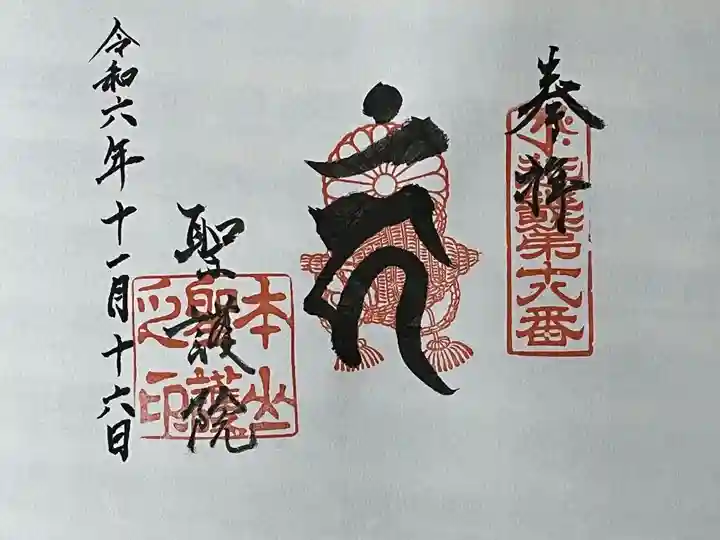 奉拝
第十八番
聖護院
本山
聖護
之印
令和六年十一月十六日